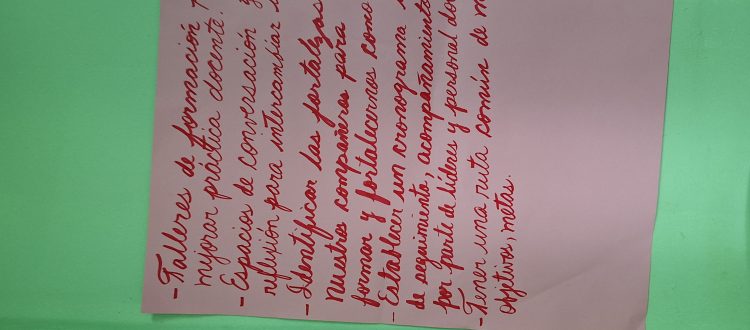 - Talleres de formación
mejorar práctica docente.
- Espacios de conversación y
reflexión para intercambiar
- Identificar las fortalezas
nuestros compañeros para
formar y fortalecernos como
- Establecer un cronograma
de seguimiento, acompañamiento
por parte de líderes y personal
- Tener una ruta común de
objetivos, metas.